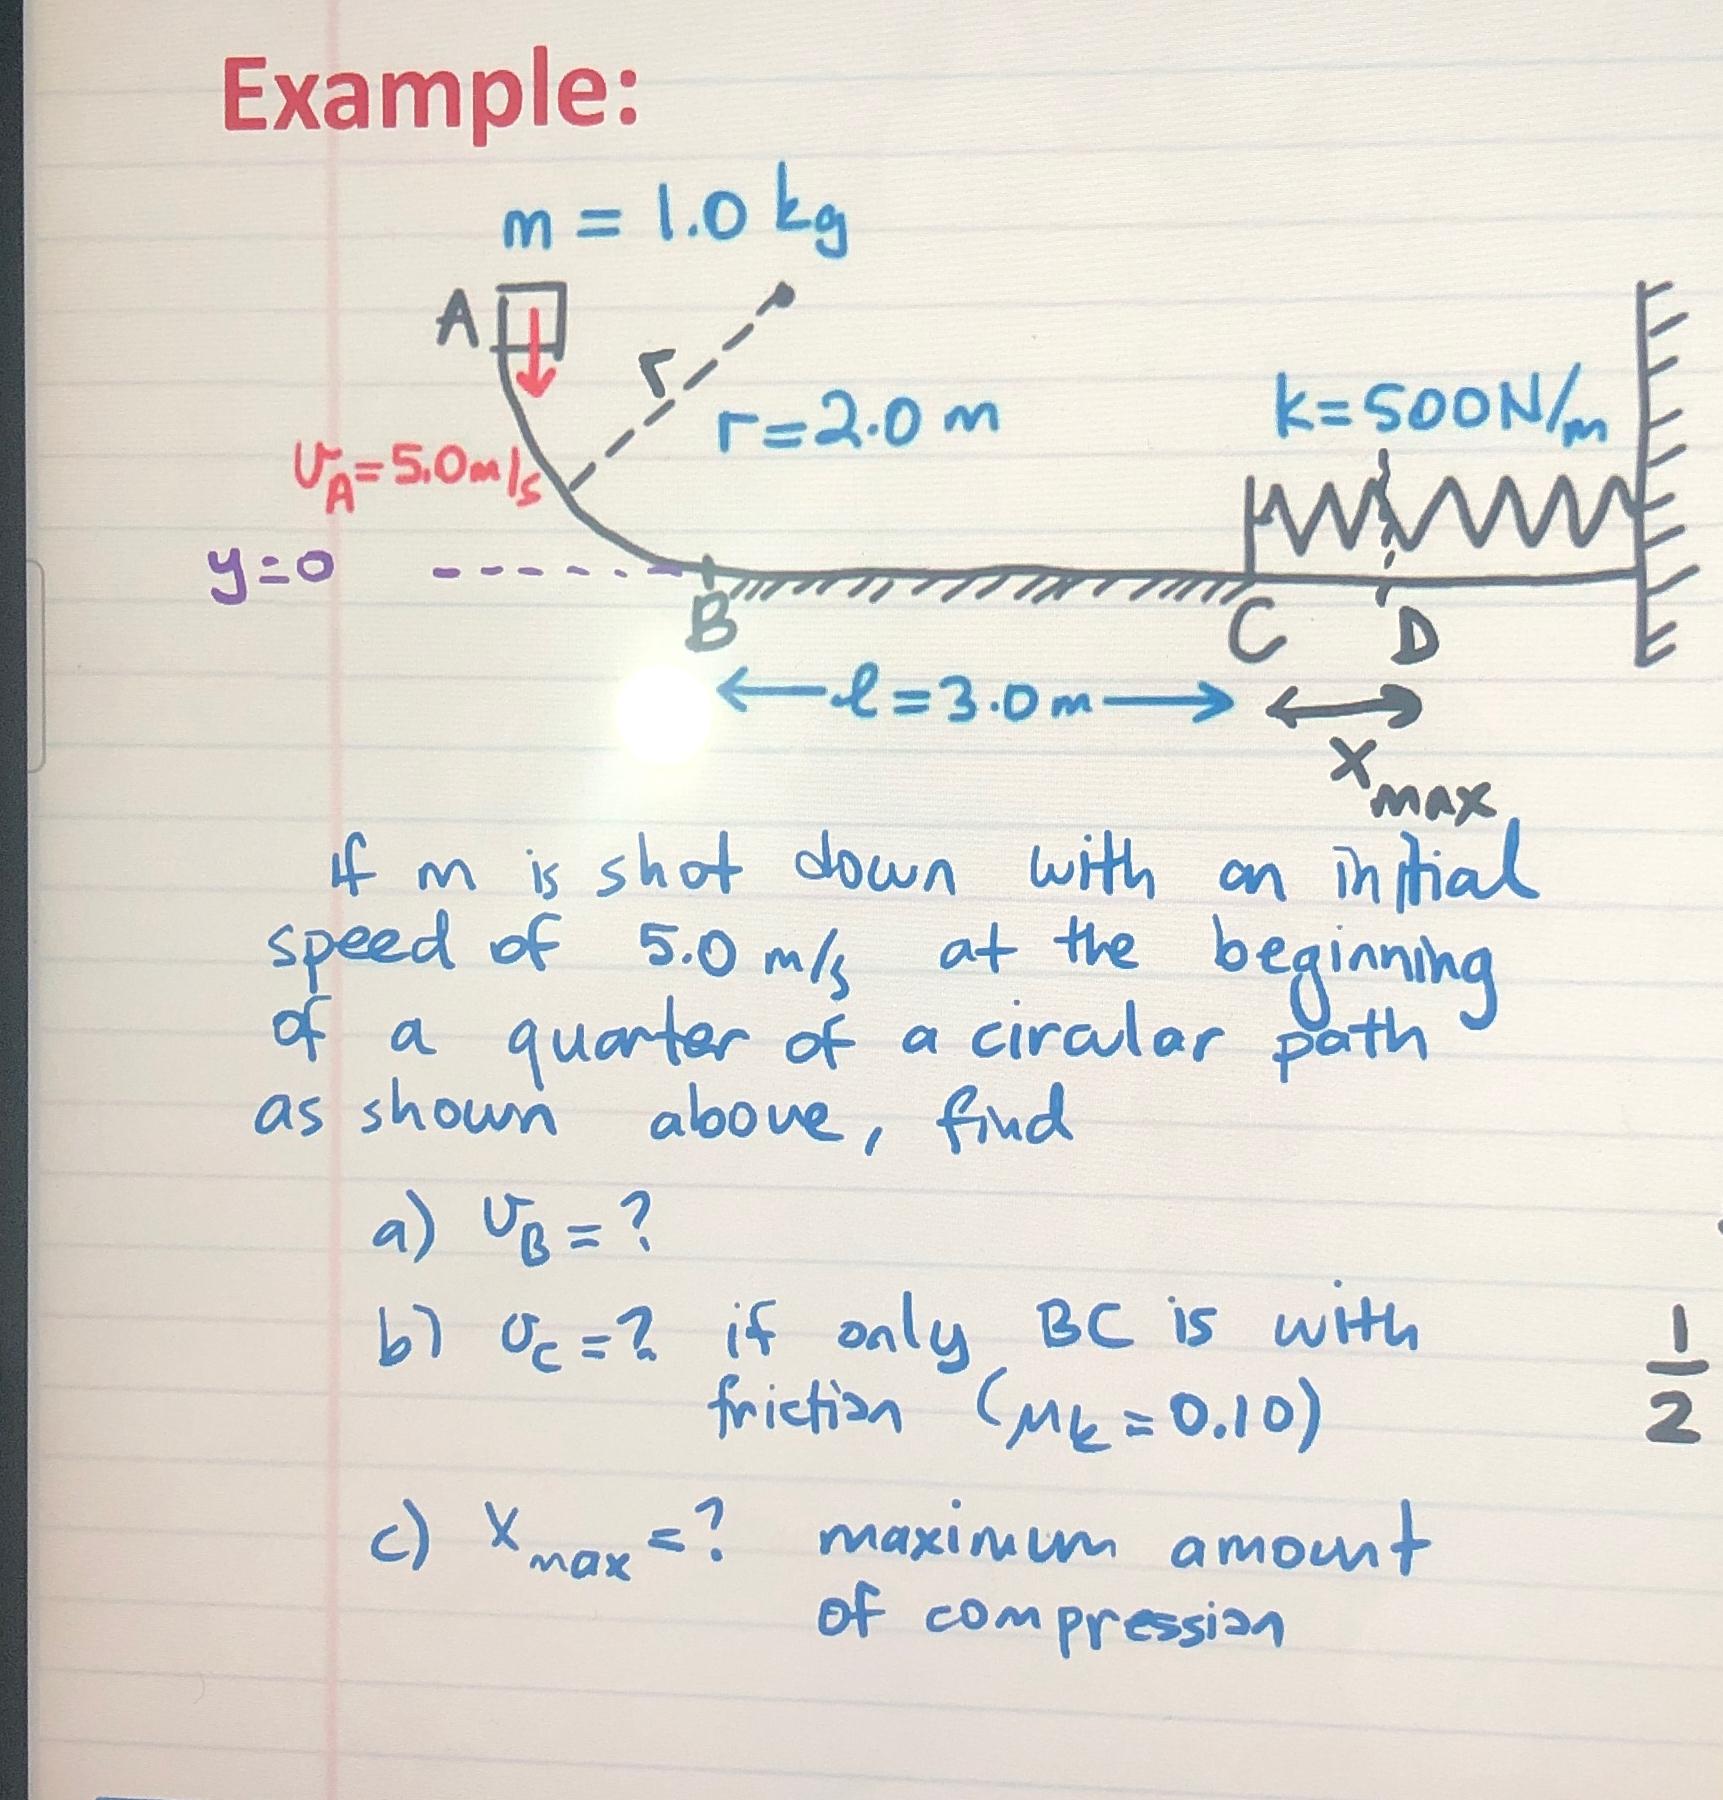 Example:
m = 1.0 kg
A
r
r=2.0 m
k=500N/m
υA=5.0m/s
y=0
B
C
D
ℓ=3.0m
xmax
If m is shot down with an initial
speed of 5.0 m/s at the beginning
of a quarter of a circular path
as shown above, find
a) υB=?
b) υc=? if only BC is with
friction (μk=0.10)
1
2
c) xmax=? maximum amount
of compression